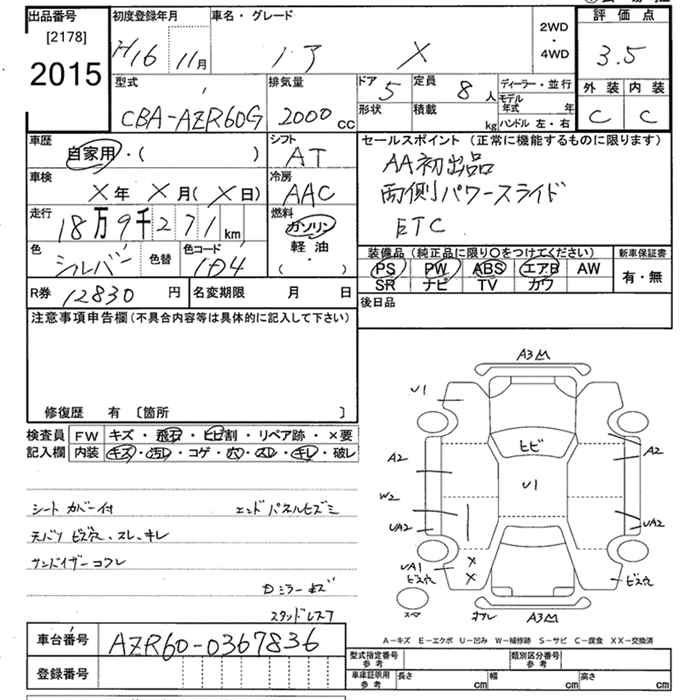 出品番号
[2178]
2015
初度登録年月
H16 11月
車名・グレード
ノア X
2WD
・
4WD
評価点
3.5
外装 内装
C C
型式
CBA-AZR60G
排気量
2000 cc
ドア 5
定員 8 人
形状
積載 kg
ディーラー・並行
モデル年式 年
ハンドル 左・右
車歴
自家用・( )
シフト
AT
セールスポイント (正常に機能するものに限ります)
AA初出品
両側パワースライド
ETC
車検
X年 X月(X日)
冷房
AAC
走行
18万9千271km
燃料
ガソリン
軽油
( ・ )
色
シルバー
色替
色コード
1D4
装備品 (純正品に限り○をつけてください)
PS PW ABS エアB AW
SR ナビ TV カワ
新車保証書
有・無
R券 12830 円
名変期限 月 日
後日品
注意事項申告欄 (不具合内容等は具体的に記入して下さい)
修復歴 有 〔箇所 〕
検査員記入欄
FW キズ・飛石・ヒビ割・リペア跡・×要
内装 キズ・汚レ・コゲ・穴・スレ・キレ・破レ
シートカバー付 エンドパネルヒズミ
天バリ ビス穴、スレ、キレ
サンバイザーコワレ
Dミラーキズ
スタッドレス7
A3
U1
A2
ヒビ
U1
A2
W2
UA2
UA2
UA1
ビス穴
X
X
ビス穴
A3
車台番号 AZR60-0367836
登録番号
A-キズ E-エクボ U-凹み W-補修跡 S-サビ C-腐食 XX-交換済
型式指定番号 参考
類別区分番号 参考
車庫証明用 参考 長さ cm 幅 cm 高さ cm